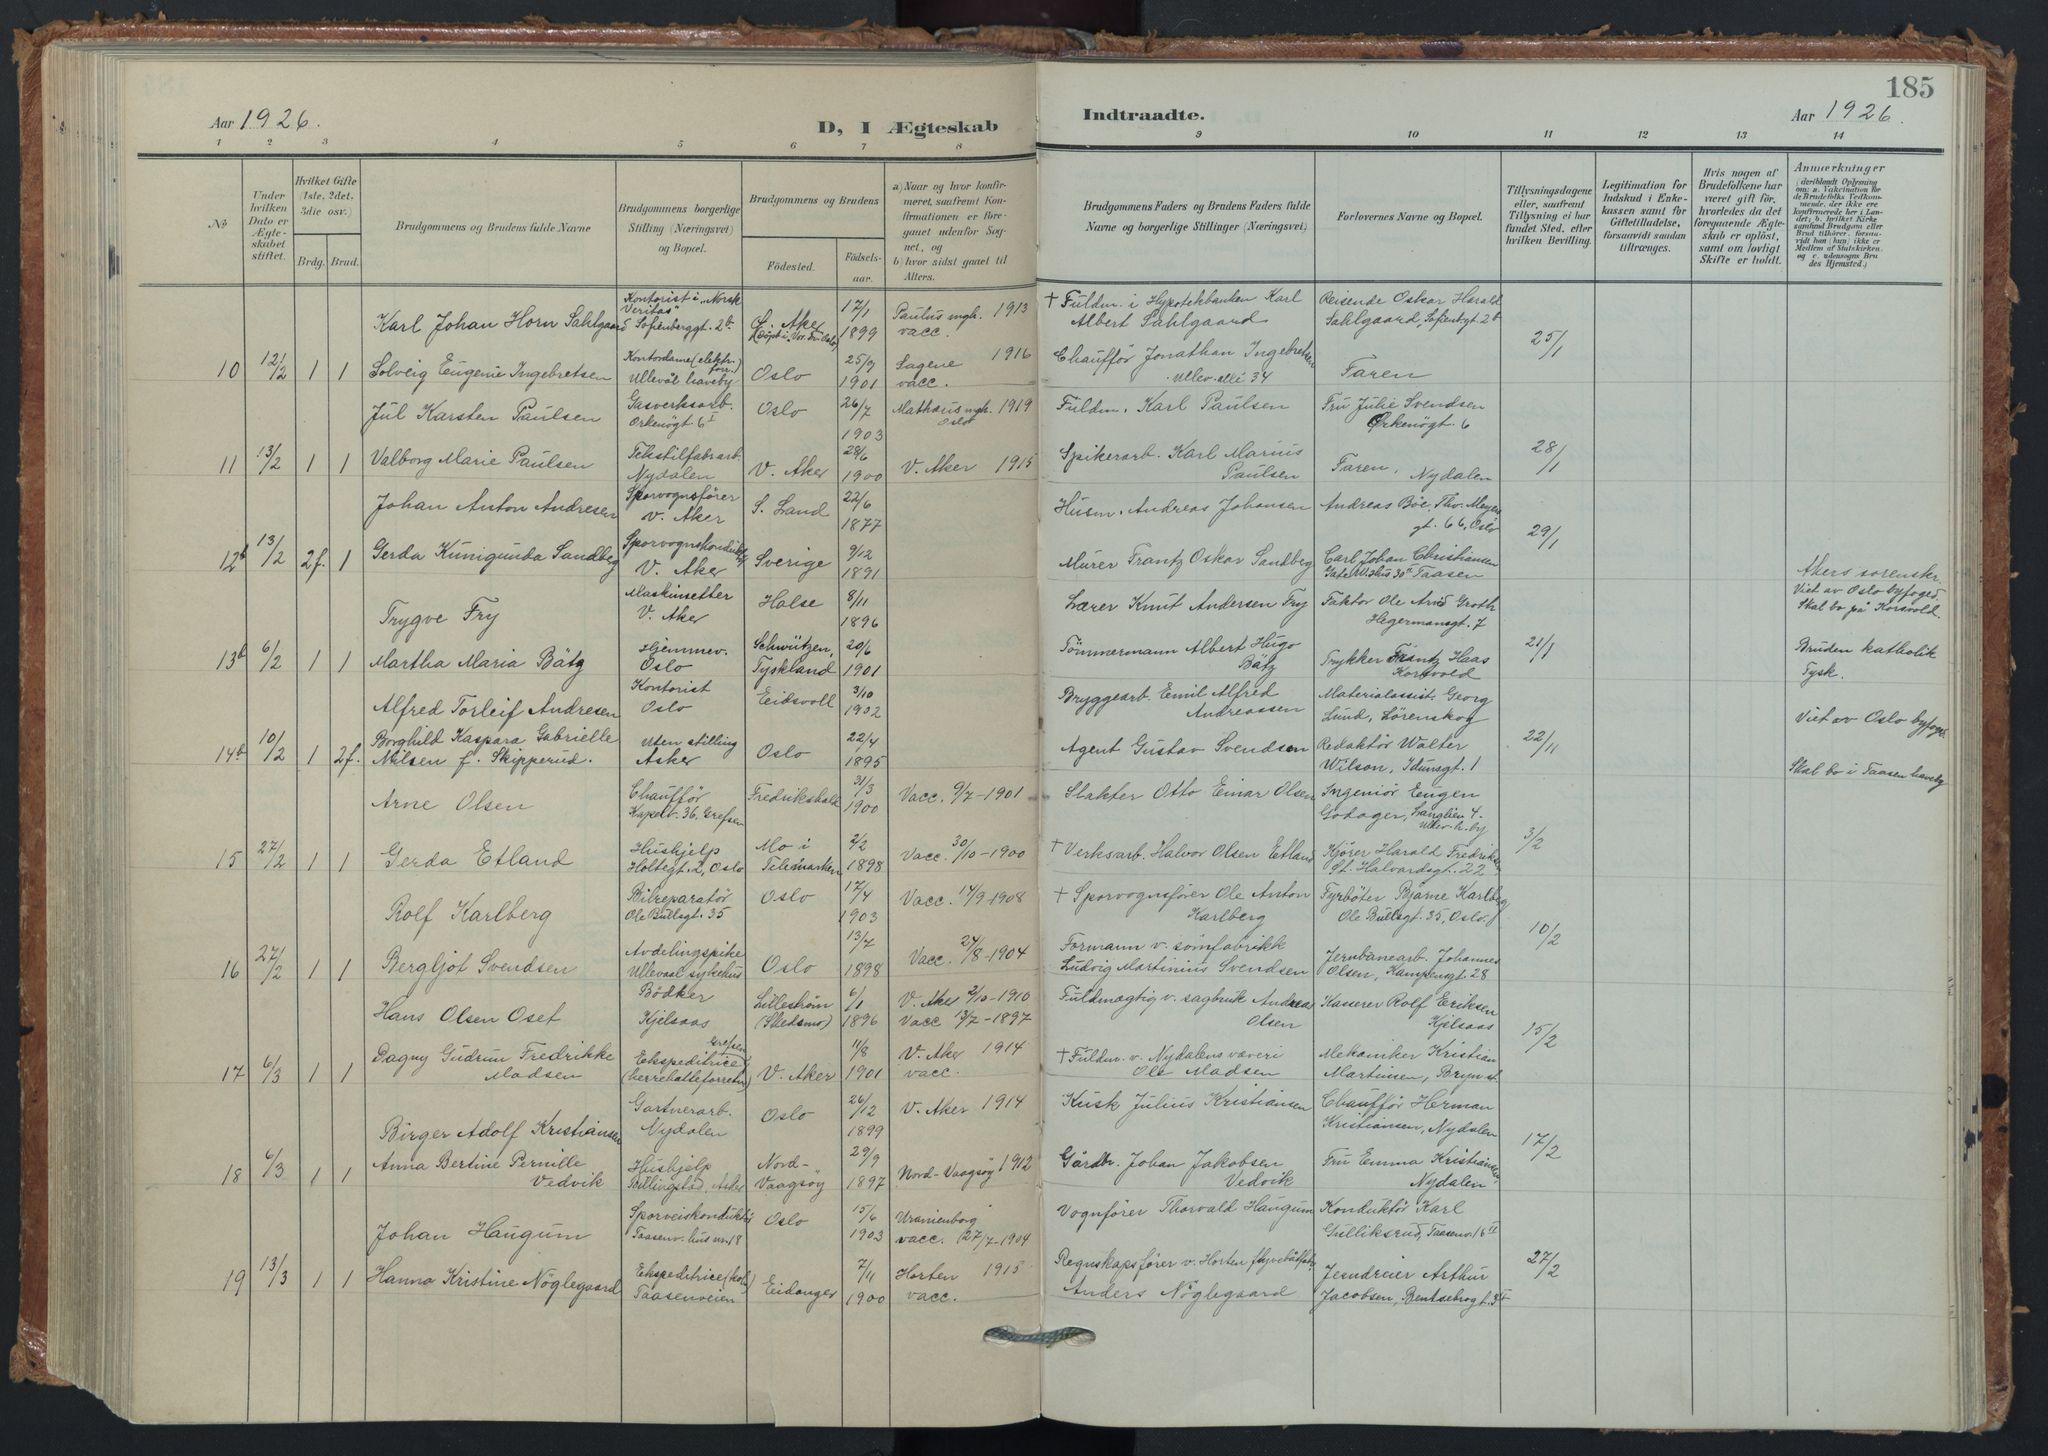 185
Aar 1926.
D, I Ægteskab
Indtraadte.
Aar 1926.
1 2 3 4 5 6 7 8 9 10 11 12 13 14
No
Under hvilken Dato er Ægteskabet stiftet.
Hvilket Gifte (1ste, 2det, 3die osv.)
Brdg. Brud.
Brudgommens og Brudens fulde Navne
Brudgommens borgerlige Stilling (Næringsvei) og Bopæl.
Brudgommens og Brudens
Födested.
Födselsaar.
a) Naar og hvor konfirmeret, saafremt Konfirmationen er foregaaet udenfor Sognet, og
b) hvor sidst gaaet til Alters.
Brudgommens Faders og Brudens Faders fulde Navne og borgerlige Stillinger (Næringsvei)
Forlovernes Navne og Bopæl.
Tillysningsdagene eller, saafremt Tillysning ei har fundet Sted, efter hvilken Bevilling.
Legitimation for Indskud i Enkekassen samt for Giftetilladelse, forsaavidt saadan tiltrænges.
Hvis nogen af Brudefolkene har været gift før, hvorledes da det foregaaende Ægteskab er opløst, samt om lovligt Skifte er holdt.
Anmærkninger
(deriblandt Oplysning om: a. Vakcination for de Brudefolks Vedkommende, der ikke ere konfirmerede her i Landet; b. hvilket Kirkesamfund Brudgom eller Brud tilhører, forsaavidt han (hun) ikke er Medlem af Statskirken, og c. udensogns Brudes Hjemsted.)
Karl Johan Horn Sahlgaard
Kontorist i "Norsk Veritas" Sofienberggt. 2b
Ö. Aker (Döpt i Vor Fri. Oslo)
17/1 1899
Paulus mgh. 1913 vacc.
† Fuldm. i Hypotekbanken Karl Albert Sahlgaard
Reisende Oskar Harald Sahlgaard, Sofienbgt 2b
25/1
10 12/2 1 1
Solveig Eugenie Ingebretsen
Kontordame (elektr. forr.) Ullevål haveby
Oslo
25/9 1901
Sagene 1916 vacc.
Chaufför Jonathan Ingebretsen Ullev. alli 34
Faren
Jul Karsten Paulsen
Gasverksarb. Orkenögt 6I
Oslo
26/7 1903
Mathæus mgh. 1919 Oslo
Fuldm. Karl Paulsen
Fru Julie Svendsen Örkenögt. 6
11 13/2 1 1
Valborg Marie Paulsen
Tekstilfabrarb. Nydalen
V. Aker
28/6 1900
V. Aker 1915
Spikerarb. Karl Marius Paulsen
Faren, Nydalen
28/1
Johan Anton Andresen
Sporvognsförer V. Aker
S. Land
22/6 1877
Husm. Andreas Johansen
Andreas Böe, Thv. Meyers gt. 66, Oslo
29/1
12b 13/2 2f. 1
Gerda Kunigunda Sandberg
Sporvognskonduktör V. Aker
Sverige
9/12 1891
Murer Frantz Oskar Sandberg
Carl Johan Christiansen Taasen
Trygve Fry
Maskinsetter V. Aker
Halse
8/11 1896
Lærer Knut Andersen Fry
Faktor Ole Arvid Groth Hegermansgt. 7
Akers sorenskr.
Viet av Oslo byfoged.
Skal bo på Korsvold.
13b 6/2 1 1
Martha Maria Bätz
Hjemmev. Oslo
Schwützen, Tyskland
20/6 1901
Tömmermann Albert Hugo Bätz
Trykker Frantz Haas Korsvold
21/1
Bruden katholik Tysk.
Alfred Torleif Andresen
Kontorist Oslo
Eidsvoll
3/10 1902
Bryggearb. Emil Alfred Andreassen
Materialassist. Georg Lund, Lörenskog
Viet av Oslo byfoged
14b 10/2 1 2f.
Borghild Kaspara Gabrielle Nilsen f. Skipperud.
Uten stilling Asker
Oslo
22/4 1895
Agent Gustav Svendsen
Redaktör Walter Wilson, Idunsgt. 1
22/11
Skal bo i Taasen haveby
Arne Olsen
Chaufför Kapelv. 36. Grefsen
Fredrikshald
31/3 1900
Vacc. 9/7-1901
Slakter Otto Einar Olsen
Ingeniör Eugen Godager, Langlien 4. Ullev. h. by
15 27/2 1 1
Gerda Etland
Hushjelp Holtegt. 2, Oslo
Mo i Telemarken
2/2 1898
Vacc. 30/10-1900
† Verksarb. Halvor Olsen Etland
Kjörer Harald Fredriksen St. Halvardsgt. 22
3/2
Rolf Karlberg
Bilreparatör Ole Bullsgt. 35
Oslo
17/4 1903
Vacc. 14/9-1908
† Sporvognsförer Ole Anton Karlberg
Fyrböter Bjarne Karlberg Ole Bullsgt. 35, Oslo.
16 27/2 1 1
Bergljot Svendsen
Avdelingspike Ullevaal sykehus
Oslo
13/7 1898
Vacc. 24/8-1904
Formann v. sömfabrikk Ludvig Martinius Svendsen
Jernbanearb. Johannes Olsen, Kampensgt. 28
10/2
Hans Olsen Oset
Bödker Kjelsaas
Lilleström (Skedsmo)
6/1 1896
V. Aker 2/10-1910 Vacc 13/7-1897
Fuldmægtig v. sagbruk Andreas Olsen
Kasserer Rolf Eriksen Kjelsaas
15/2
17 6/3 1 1
Dagny Gudrun Fredrikke Madsen
Grefsen Ekspeditrice (herrehatteforretn)
V. Aker
11/8 1901
V. Aker 1914 vacc.
† Fuldm. v. Nydalens væveri Ole Madsen
Mekaniker Kristian Martinsen, Bryn st.
Birger Adolf Kristiansen
Gartnerarb. Nydalen
Oslo
26/12 1899
V. Aker 1914
Kusk Julius Kristiansen
Chaufför Herman Kristiansen, Nydalen
17/2
18 6/3 1 1
Anna Bertine Pernille Vedvik
Hushjelp Billingstad, Asker
Nord-Vaagsöy
29/9 1897
Nord-Vaagsöy 1912
Gårdbr. Johan Jakobsen Vedvik
Fru Emma Kristiansen, Nydalen
Johan Haugum
Sporveiskonduktör Taasenv. hus nr 18
Oslo
15/6 1903
Uranienborg vacc. 127/7-1904
Vognförer Thorvald Haugum
Konduktör Karl Gulliksrud, Taasenv. 16II
19 13/3 1 1
Hanna Kristine Nöglegaard
Ekspeditrice (kol.) Taasenveien
Eidanger
7/11 1900
Horten 1915 vacc.
Regnskapsförer v. Horten flyvebåtfabr. Anders Nöglegaard
Jerndreier Arthur Jacobsen, Bentsebrogt.
27/2